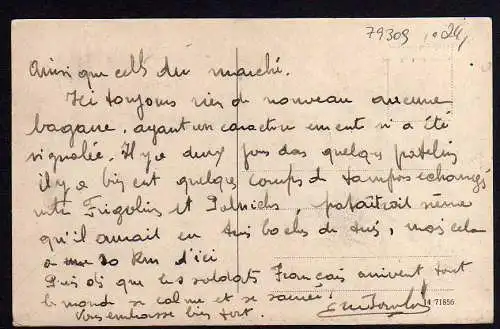 79309 1024
Ainsi que cells du marché.
Ici toujours rien de nouveau aucune
bagarre, ayant un caractère ement n'a été
signalée. Il y a deux jours das quelques patelins
il y a bien eut quelques coups d tampons echangés
entre Frigolins et Polnichs, paraitrait même
qu'il aurait en trois boches de tués, mais cela
a 20 km d'ici
Puis dis que les soldats Français arrivent tout
le monde se calme et se sauve!
Vous embrasse bien fort.
14 71656